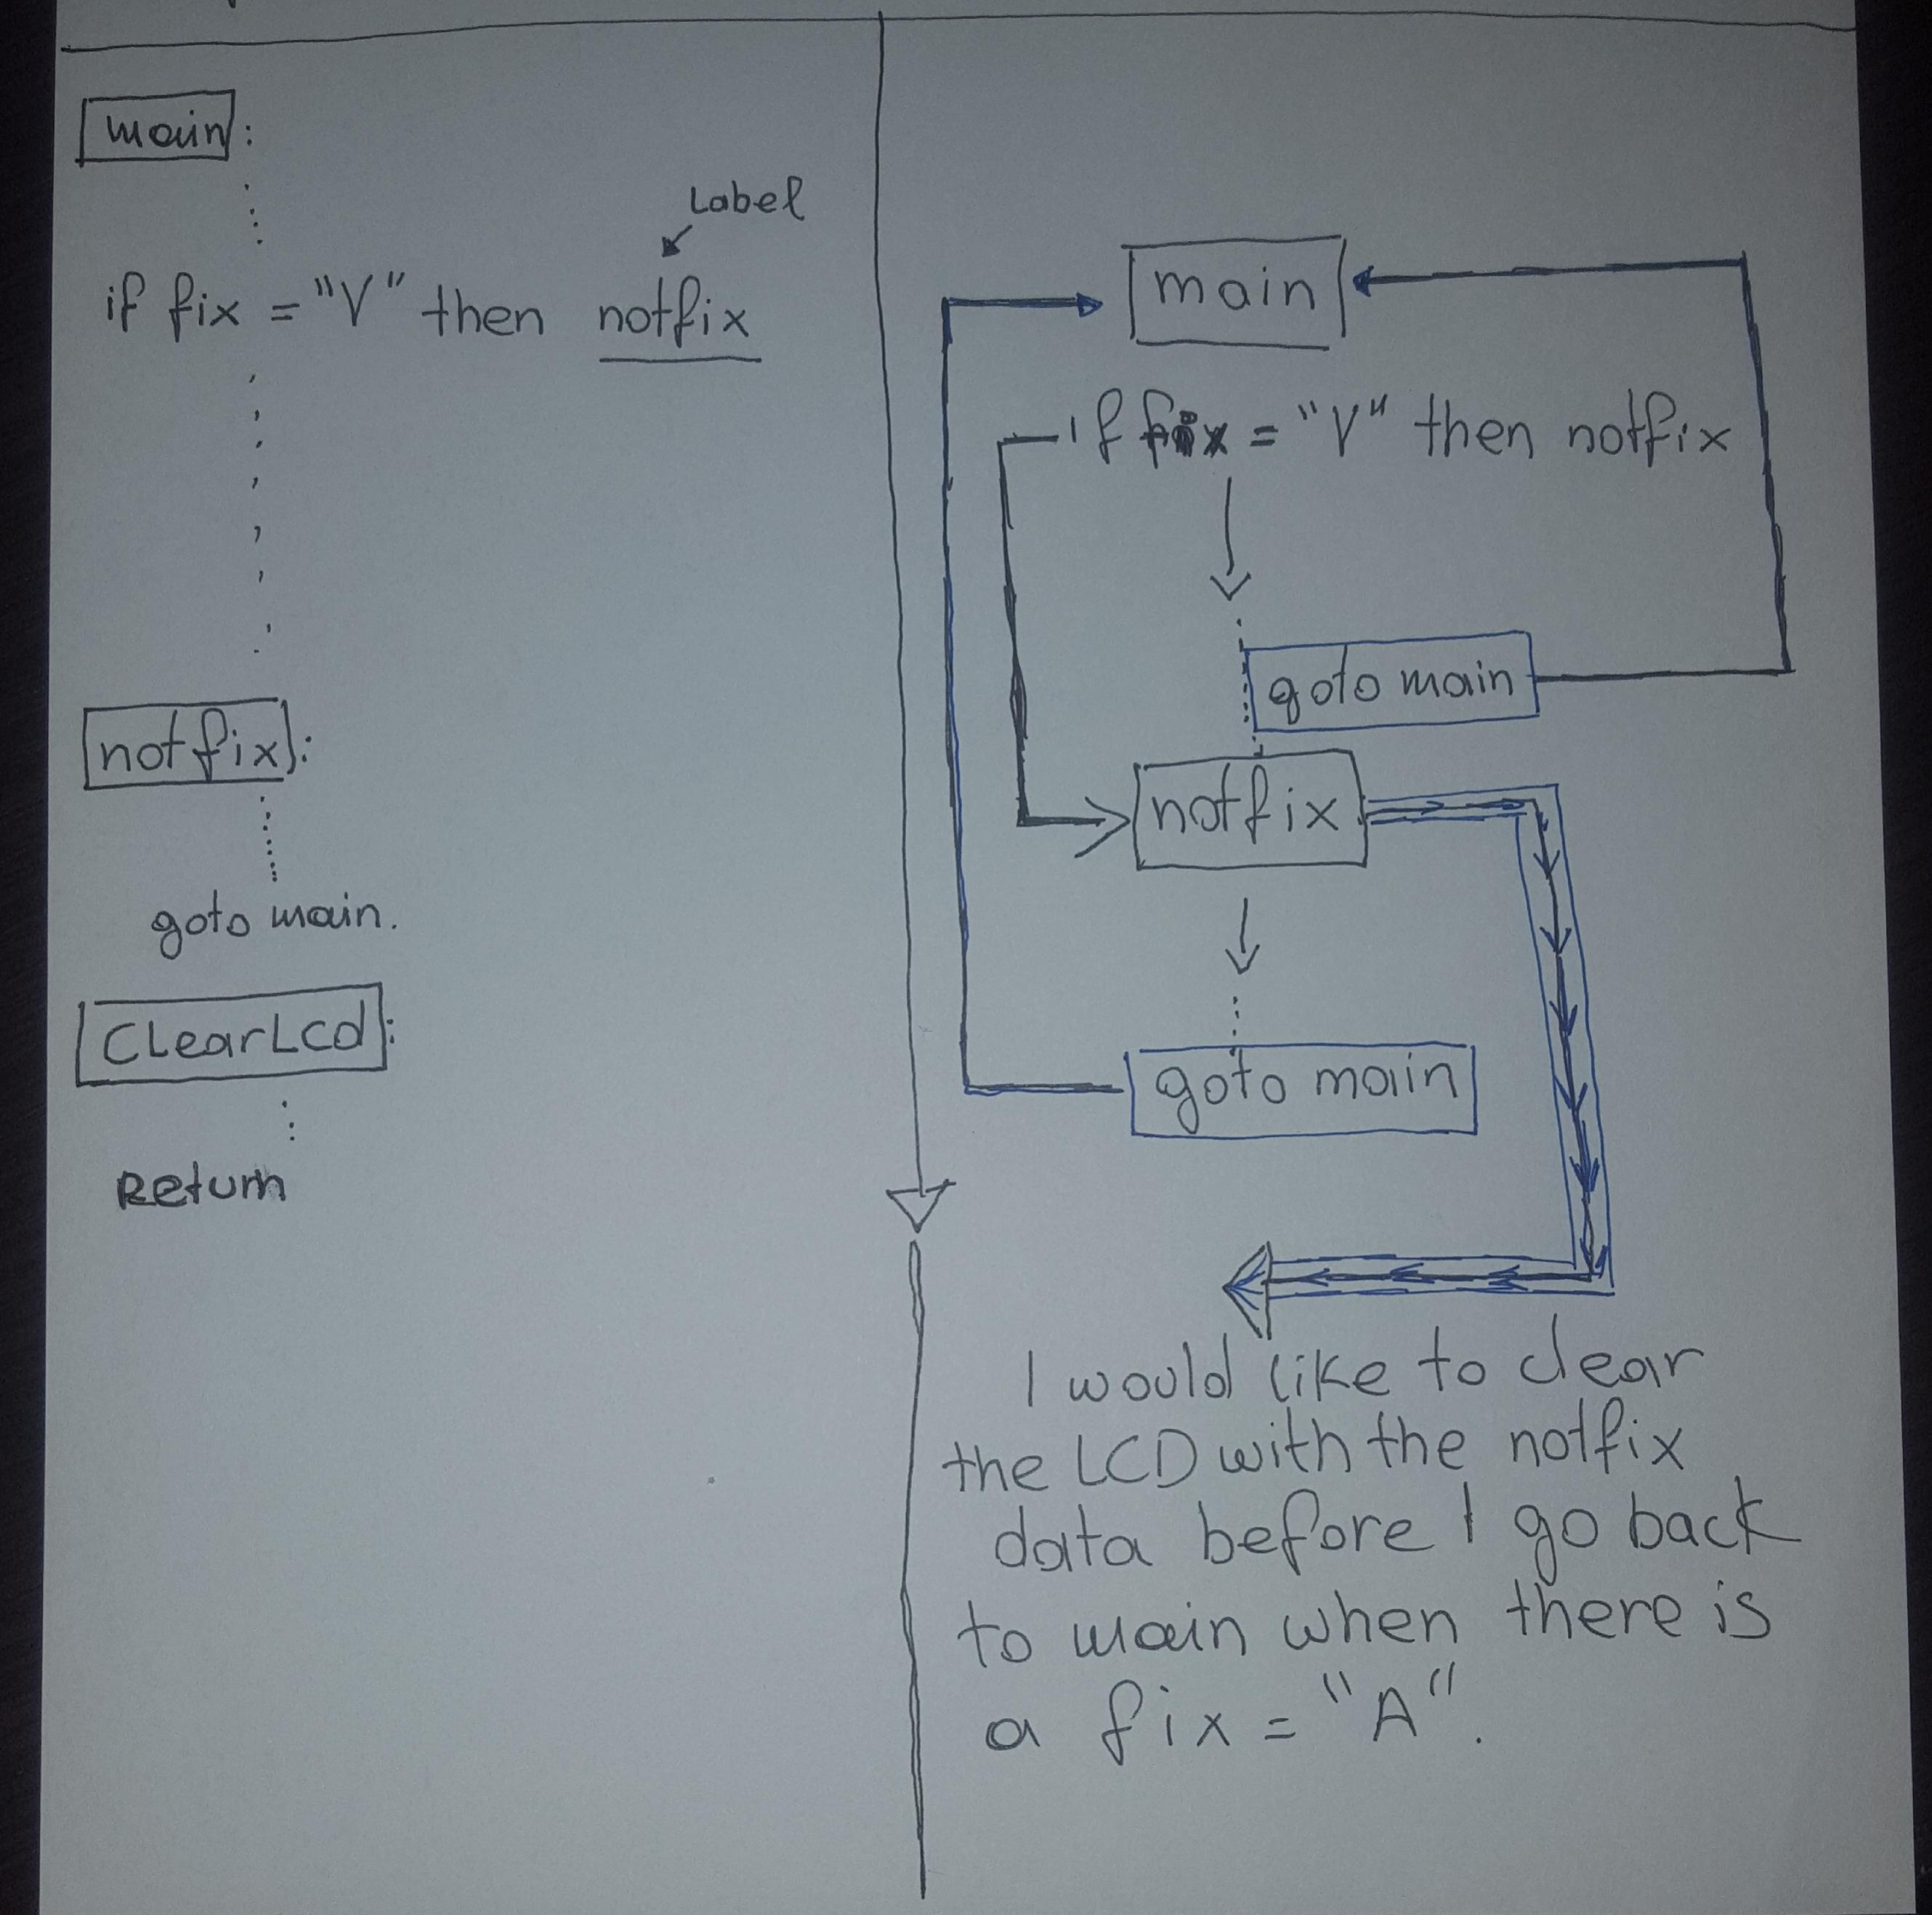 main:
Label
if fix = "V" then notfix
notfix:
goto main.
ClearLcd:
Return
main
if fix = "V" then notfix
goto main
notfix
goto main
I would like to clear
the LCD with the notfix
data before I go back
to main when there is
a fix = "A".